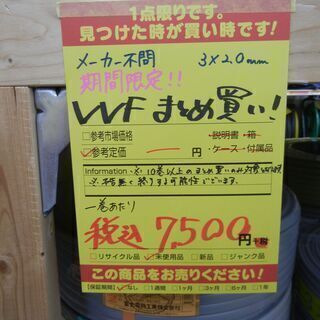 1点限りです。
見つけた時が買い時です!
メーカー不問 3×2.0mm
期間限定!!
VVF まとめ買い!
□参考市場価格
☑参考定価
ー 円
・説明書・箱
・ケース・付属品
Information ※10巻以上のまとめ買いのみ対象
※予告無く終了する可能性ございます。
一巻あたり
税込 7,500円
□リサイクル品 ☑未使用品 □新品 □ジャンク品
この商品をお売りください!
【保証期間】☑なし □1週間 □1ヶ月 □3ヶ月 □6ヶ月 □1年